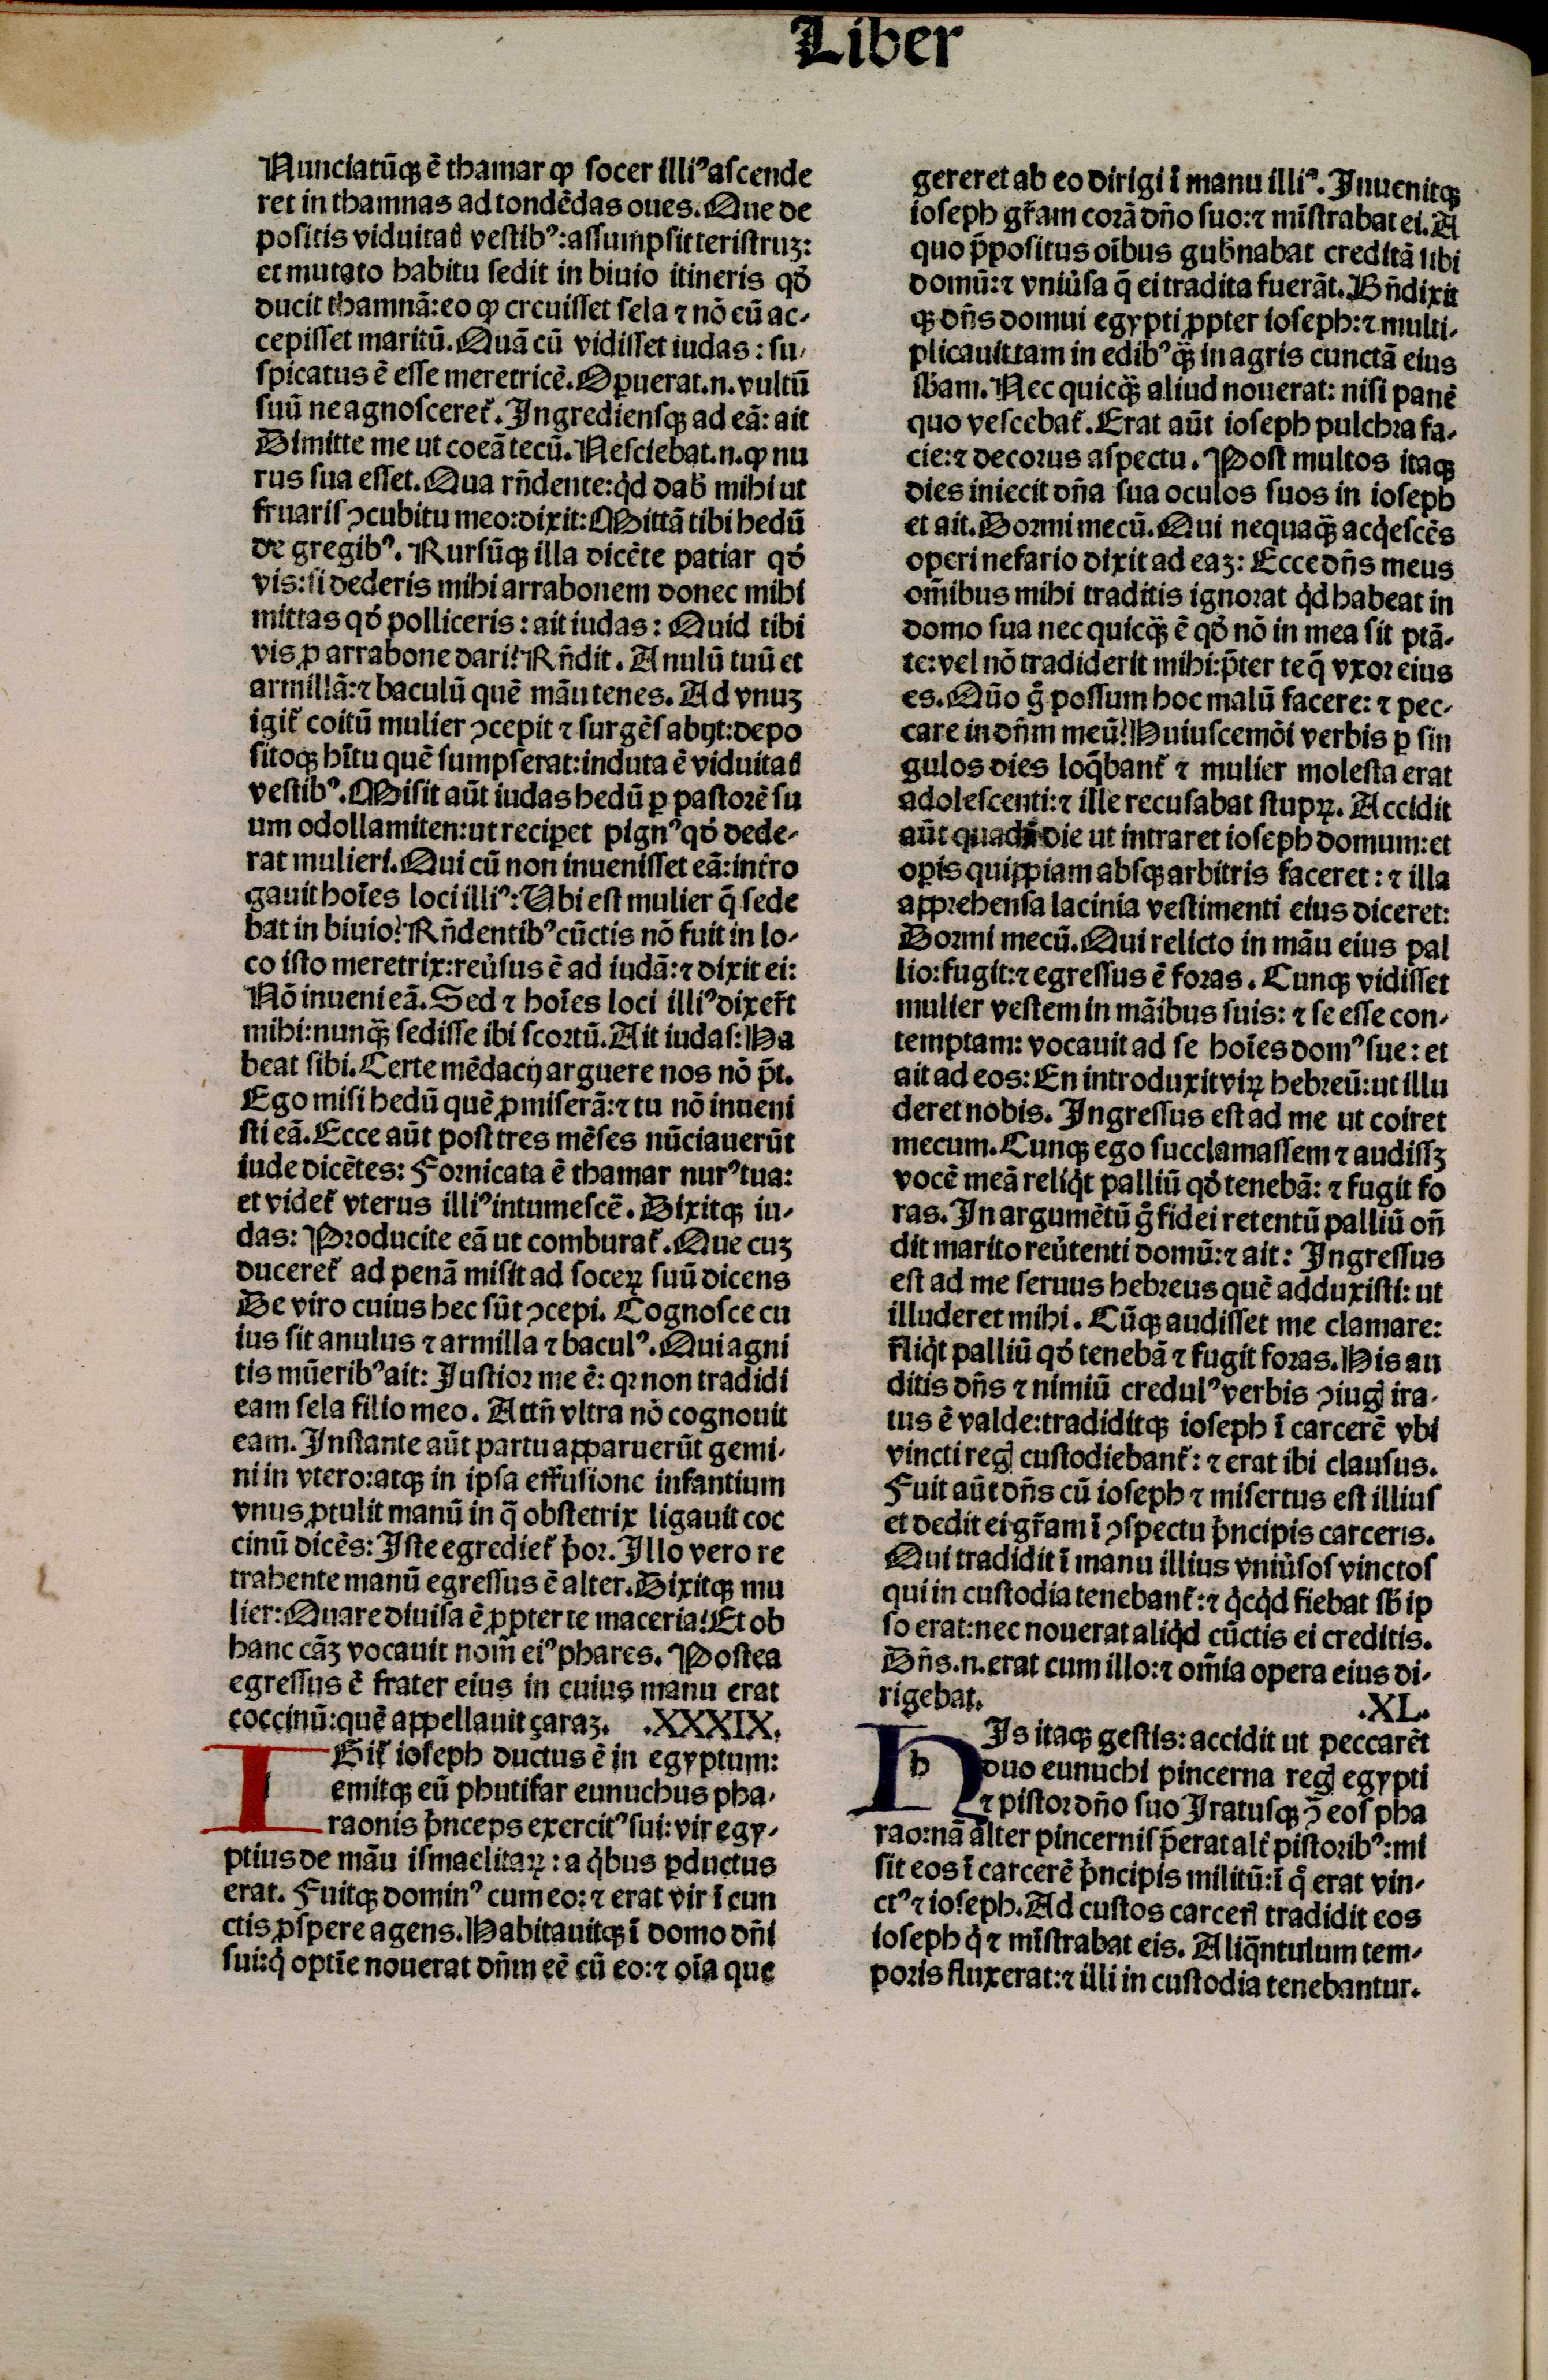 Liber
Nunciatūqꝫ ē thamar ꝙ socer illiꝰ ascende
ret in thamnas ad tondēdas oues. Que de
positis viduitaꝭ vestibꝰ: assumpsit teristruꝫ:
et mutato habitu sedit in biuio itineris qđ
ducit thamnā: eo ꝙ crcuisset sela ⁊ nō eū ac-
cepisset maritū. Quā cū vidisset iudas: su-
spicatus ē esse meretricē. Oꝑuerat .n. vultū
suū ne agnosceret᷑. Ingrediensqꝫ ad eā: ait
Dimitte me ut coeā tecū. Nesciebat .n. ꝙ nu
rus sua esset. Qua rn̄dente: qͥd dabꝭ mihi ut
fruaris ꝯcubitu meo: dixit: Mittā tibi hedū
de gregibꝰ. Rursūqꝫ illa dicēte patiar qđ
vis: si dederis mihi arrabonem donec mihi
mittas qđ polliceris: ait iudas: Quid tibi
vis ꝓ arrabone dari? Rn̄dit. Anulū tuū et
armillā: ⁊ baculū quē māu tenes. Ad vnuꝫ
igit᷑ coitū mulier ꝯcepit ⁊ surgēs abijt: depo
sitoqꝫ hītu quē sumpserat: induta ē viduitaꝭ
vestibꝰ. Misit aūt iudas hedū ꝑ pastorē su
um odollamiten: ut reciꝑet pignꝰ qđ dede-
rat mulieri. Qui cū non inuenisset eā: int̄ro
gauit hoīes loci illiꝰ: Ubi est mulier q̄ sede
bat in biuio? Rn̄dentibꝰ cūctis nō fuit in lo-
co isto meretrix: reu̓sus ē ad iudā: ⁊ dixit ei:
Nō inueni eā. Sed ⁊ hoīes loci illiꝰ dixer̄t
mihi: nunqꝫ̄ sedisse ibi scortū. Ait iudas: Ha
beat sibi. Certe mēdacij arguere nos nō p̄t.
Ego misi hedū quē ꝓmiserā: ⁊ tu nō inueni
sti eā. Ecce aūt post tres mēses nūciauerūt
iude dicētes: Fornicata ē thamar nurꝰ tua:
et videt᷑ vterus illiꝰ intumescē. Dixitqꝫ iu-
das: Producite eā ut comburat᷑. Que cuꝫ
duceret᷑ ad penā misit ad soceꝝ suū dicens
De viro cuius hec sūt ꝯcepi. Cognosce cu
ius sit anulus ⁊ armilla ⁊ baculꝰ. Qui agni
tis mūeribꝰ ait: Iustior me ē: qꝛ non tradidi
eam sela filio meo. Attn̄ vltra nō cognouit
eam. Instante aūt partu apparuerūt gemi-
ni in vtero: atqꝫ in ipsa effusione infantium
vnus ꝓtulit manū in q̄ obstetrix ligauit coc
cinū dicēs: Iste egrediet᷑ pͥor. Illo vero re
trahente manū egressus ē alter. Dixitqꝫ mu
lier: Quare diuisa ē ꝓpter te maceria? Et ob
hanc cāꝫ vocauit nom̄ eiꝰ phares. Postea
egressus ē frater eius in cuius manu erat
coccinū: quē appellauit çaraꝫ. .XXXIX.
IGit᷑ ioseph ductus ē in egyptum:
emitqꝫ eū phutifar eunuchus pha-
raonis pͥnceps exercitꝰ sui: vir egy-
ptius de māu ismaelitaꝝ: a qͥbus ꝑductus
erat. Fuitqꝫ dominꝰ cum eo: ⁊ erat vir ī cun
ctis ꝓspere agens. Habitauitqꝫ ī domo dn̄i
sui: qͥ optīe nouerat dn̄m eē cū eo: ⁊ oīa que
gereret ab eo dirigi ī manu illiꝰ. Inuenitqꝫ
ioseph gr̄am corā dn̄o suo: ⁊ mīstrabat ei. A
quo p̄positus oībus gub̄nabat creditā sibi
domū: ⁊ vniu̓sa q̄ ei tradita fuerāt. Bn̄dixit
qꝫ dn̄s domui egypti ꝓpter ioseph: ⁊ multi-
plicauit tam in edibꝰ qꝫ̄ in agris cunctā eius
sb̄am. Nec quicqꝫ̄ aliud nouerat: nisi panē
quo vescebat᷑. Erat aūt ioseph pulchra fa-
cie: ⁊ decorus aspectu. Post multos itaqꝫ
dies iniecit dn̄a sua oculos suos in ioseph
et ait. Dormi mecū. Qui nequaqꝫ̄ acqͥescēs
operi nefario dixit ad eaꝫ: Ecce dn̄s meus
om̄ibus mihi traditis ignorat qͥd habeat in
domo sua nec quicqꝫ̄ ē qđ nō in mea sit ptā-
te: vel nō tradiderit mihi: p̄ter te q̄ vxor eius
es. Quō gͦ possum hoc malū facere: ⁊ pec-
care in dn̄m meū? Huiuscemōi verbis ꝑ sin
gulos dies loq̄bant᷑ ⁊ mulier molesta erat
adolescenti: ⁊ ille recusabat stupꝝ. Accidit
aūt quadā die ut intraret ioseph domum: et
oꝑis quippiam absqꝫ arbitris faceret: ⁊ illa
apprehensa lacinia vestimenti eius diceret:
Dormi mecū. Qui relicto in māu eius pal
lio: fugit: ⁊ egressus ē foras. Cunqꝫ vidisset
mulier vestem in māibus suis: ⁊ se esse con-
temptam: vocauit ad se hoīes domꝰ sue: et
ait ad eos: En introduxit viꝝ hebreū: ut illu
deret nobis. Ingressus est ad me ut coiret
mecum. Cunqꝫ ego succlamassem ⁊ audissꝫ
vocē meā reliqͥt palliū qđ tenebā: ⁊ fugit fo
ras. In argumētū gͦ fidei retentū palliū on̄
dit marito reu̓tenti domū: ⁊ ait: Ingressus
est ad me seruus hebreus quē adduxisti: ut
illuderet mihi. Cūqꝫ audisset me clamare:
r̄liqͥt palliū qđ tenebā ⁊ fugit foras. His au
ditis dn̄s ⁊ nimiū credulꝰ verbis ꝯiugꝭ ira-
tus ē valde: tradiditqꝫ ioseph ī carcerē vbi
vincti regꝭ custodiebant᷑: ⁊ erat ibi clausus.
Fuit aūt dn̄s cū ioseph ⁊ misertus est illius
et dedit ei gr̄am ī ꝯspectu pͥncipis carceris.
Qui tradidit ī manu illius vniu̓sos vinctos
qui in custodia tenebant᷑: ⁊ qͥcqͥd fiebat sb̄ ip
so erat: nec nouerat aliqͥd cūctis ei creditis.
Dn̄s .n. erat cum illo: ⁊ om̄ia opera eius di-
rigebat. .XL.
HIs itaqꝫ gestis: accidit ut peccarēt
duo eunuchi pincerna regꝭ egypti
⁊ pistor dn̄o suo Iratusqꝫ ꝯ̄ eos pha
rao: nā alter pincernis p̄erat alt᷑ pistoribꝰ: mi
sit eos ī carcerē pͥncipis militū: ī qͦ erat vin-
ctꝰ ⁊ ioseph. Ad custos carcerꝭ tradidit eos
ioseph qͥ ⁊ mīstrabat eis. Aliqͣntulum tem-
poris fluxerat: ⁊ illi in custodia tenebantur.